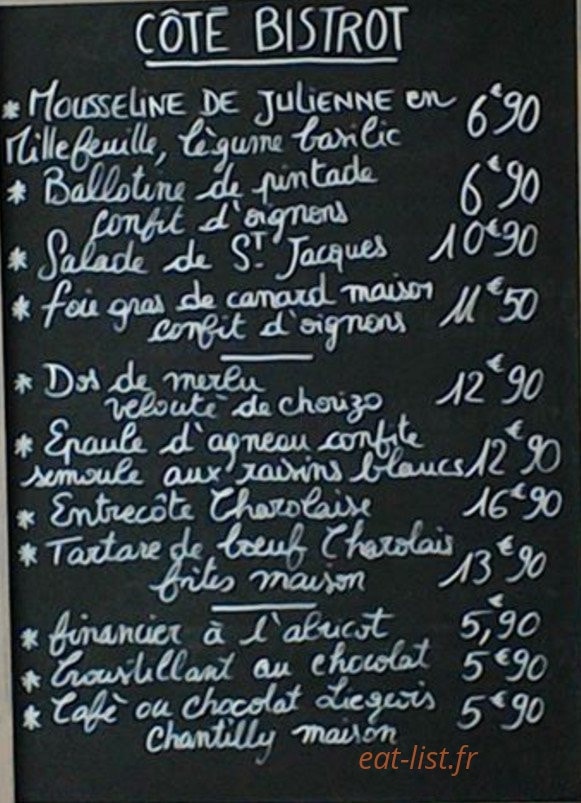 CÔTÉ BISTROT
* MOUSSELINE DE JULIENNE en 6€90
Millefeuille, légume basilic
* Ballotine de pintade 6€90
confit d'oignons
* Salade de St Jacques 10€90
* foie gras de canard maison 11€50
confit d'oignons
* Dos de merlu 12€90
velouté de chorizo
* Epaule d'agneau confite 12€90
semoule aux raisins blancs
* Entrecôte Charolaise 16€90
* Tartare de boeuf Charolais 13€90
frites maison
* financier à l'abricot 5,90
* Croustillant au chocolat 5€90
* Café ou chocolat Liegeois 5€90
Chantilly maison
eat-list.fr